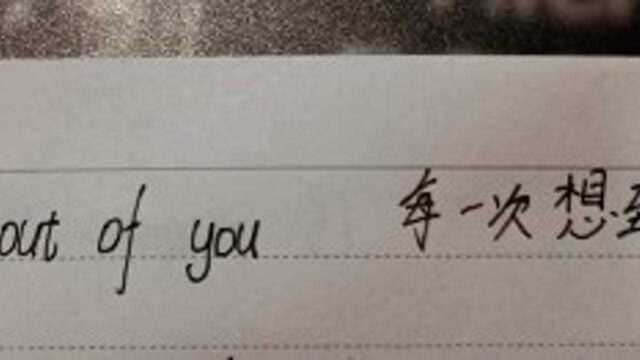 out of you 每一次想到